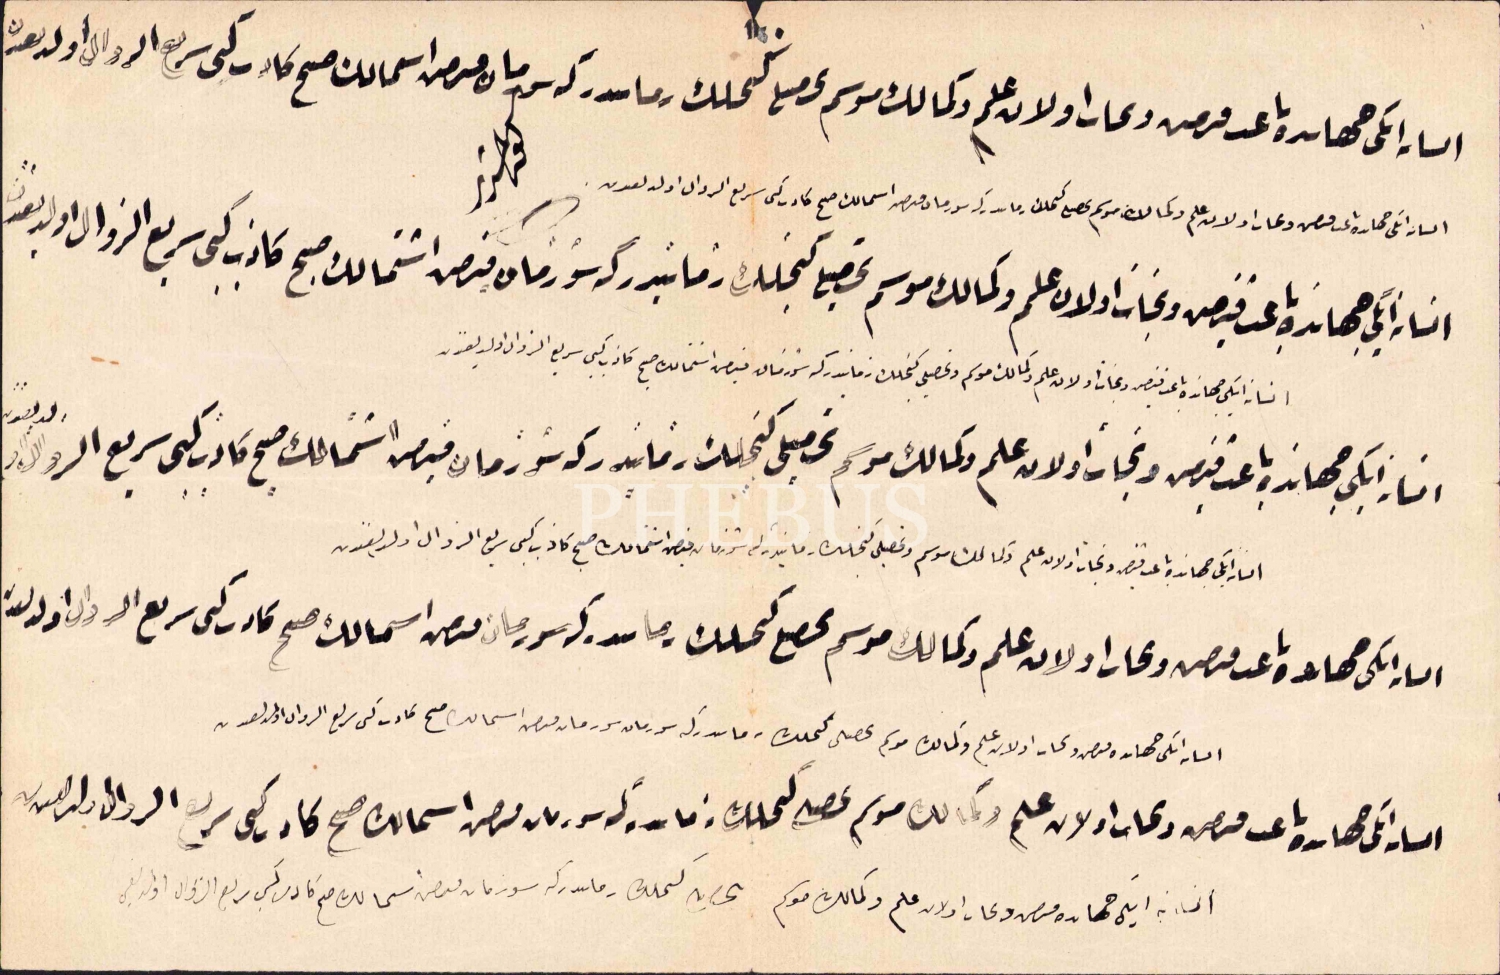 انسانه ایکی جهانده باعث فیض و نجات اولان علم و کمالك موسم تحصیلی کنجلك زمانیدر که شو زمان فیض اشتمالك صبح کاذب کبی سریع الزوال اولدیغندن
انسانه ایکی جهانده باعث فیض و نجات اولان علم و کمالك موسم تحصیلی کنجلك زمانیدر که شو زمان فیض اشتمالك صبح کاذب کبی سریع الزوال اولدیغندن
انسانه ایکی جهانده باعث فیض و نجات اولان علم و کمالك موسم تحصیلی کنجلك زمانیدر که شو زمان فیض اشتمالك صبح کاذب کبی سریع الزوال اولدیغندن
انسانه ایکی جهانده باعث فیض و نجات اولان علم و کمالك موسم و تحصیلی کنجلك زمانیدر که شو زمان فیض اشتمالك صبح کاذب کبی سریع الزوال اولدیغندن
انسانه ایکی جهانده باعث فیض و نجات اولان علم و کمالك موسم تحصیلی کنجلك زمانیدر که شو زمان فیض اشتمالك صبح کاذب کبی سریع الزوال اولدیغندن
PHEBUS
انسانه ایکی جهانده باعث فیض و نجات اولان علم و کمالك موسم و تحصیلی کنجلك زمانیدر که شو زمان فیض اشتمالك صبح کاذب کبی سریع الزوال اولدیغندن
انسانه ایکی جهانده باعث فیض و نجات اولان علم و کمالك موسم تحصیلی کنجلك زمانیدر که شو زمان فیض اشتمالك صبح کاذب کبی سریع الزوال اولدیغندن
انسانه ایکی جهانده فیض و نجات اولان علم و کمالك موسم تحصیلی کنجلك زمانیدر که شو زمان شو زمان فیض اشتمالك صبح کاذب کبی سریع الزوال اولدیغندن
انسانه ایکی جهانده باعث فیض و نجات اولان علم و کمالك موسم تحصیلی کنجلك زمانیدر که شو زمان فیض اشتمالك صبح کاذب کبی سریع الزوال اولدیغندن
انسانه ایکی جهانده فیض و نجات اولان علم و کمالك موسم تحصیلی کنجلك زمانیدر که شو زمان فیض اشتمالك صبح کاذب کبی سریع الزوال